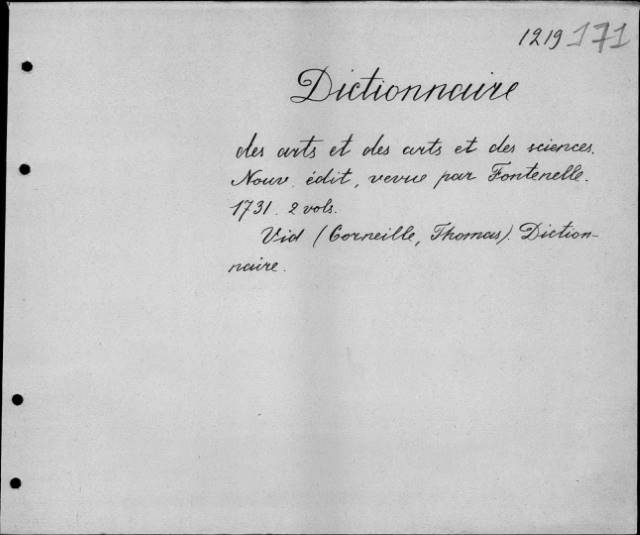 1219 171
Dictionnaire
des arts et des arts et des sciences.
Nouv. édit, revue par Fontenelle.
1731. 2 vols.
Vid (Corneille, Thomas). Diction-
naire.